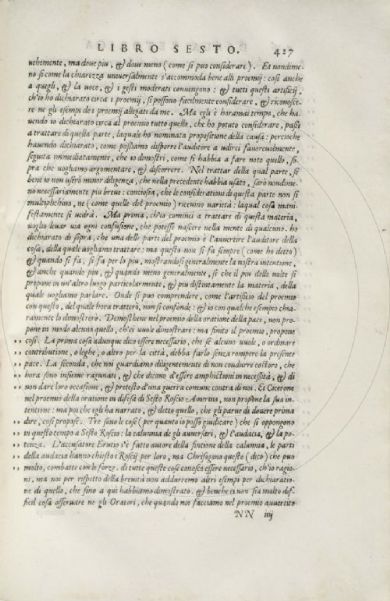 LIBRO SESTO. 427
uehemente, ma doue piu, & doue meno (come si può considerare). Et nondime-
no si come la chiarezza uniuersalmente s'accommoda bene alli proemij: così anche
a quegli, & la uoce, & i gesti moderati conuengono: & tutti questi artificij,
ch'io ho dichiarato circa i proemij, si possono facilmente considerare, & riconosce-
re ne gli esempi de i proemij allegati da me. Ma egli è horamai tempo, che ha-
uendo io dichiarato circa al proemio tutto quello, che ho potuto considerare, passi
a trattare di quella parte, laquale ho nominata propositione della causa: perche
hauendo dichiarato, come possiamo disporre l'auditore a udirci fauoreuolmente,
seguita immediatamente, che io dimostri, come si habbia a fare noto quello, so-
pra che uogliamo argumentare, & discorrere. Nel trattar della qual parte, se
bene io non userò minor diligenza, che nella precedente habbia usato, sarò nondime-
no necessariamente piu breue: conciosia, che le considerationi di questa parte non si
multiplichino, ne (come quelle del proemio) riceuino varietà: laqual cosa mani-
festamente si uedrà. Ma prima, ch'io cominci a trattare di questa materia,
uoglio leuar uia ogni confusione, che potesse nascere nella mente di qualcuno. ho
dichiarato di sopra, che una delle parti del proemio è l'auuertire l'auditore della
cosa, della quale uogliamo trattare: ma questa non si fa sempre (come ho detto)
& quando si fa, si fa per lo piu, mostrandosi generalmente la nostra intentione,
& anche quando piu, & quando meno generalmente, si che il piu delle uolte si
propone in un'altro luogo particolarmente, & piu distintamente la materia, della
quale uogliamo parlare. Onde si può comprendere, come l'artificio del proemio
con questo, del quale hora tratterò, non si confonde: & io con qualche esempio chia-
ramente lo dimostrerò. Demosthene nel proemio della oratione della pace, non pro-
pone in modo alcuno quello, ch'ei uuole dimostrare: ma finito il proemio, propone
così. La prima cosa adunque dico essere necessario, che se alcuno uuole, o ordinare
contributione, o leghe, o altro per la città, debba farlo senza rompere la presente
pace. La seconda, che noi guardiamo diligentemente di non condurre costoro, che
hora sono insieme ragunati, & che dicono d'essere amphictioni in necessità, & di
non dare loro occasione, & protesto d'una guerra comune contra di noi. Et Cicerone
nel proemio della oratione in difesa di Sesto Roscio Amerino, non propone la sua in-
tentione: ma poi che egli ha narrato, & detto quello, che gli parue di douere prima
dire, così propose. Tre sono le cose (per quanto io posso giudicare) che si oppongono
in questo tempo a Sesto Roscio: la calumnia de gli auuersari, & l'audacia, & la po-
tenza. L'accusatore Erutio s'è fatto autore della fintione della calumnia, le parti
della audacia hanno chiesto i Roscij per loro, ma Chrisogono questo (dico) che può
molto, combatte con le forze. di tutte queste cose conosco essere necessario, ch'io ragio-
ni, ma noi per rispetto della breuità non addurremo altri esempi per dichiaratio-
ne di quello, che sino a qui habbiamo dimostrato. & benche ei non sia molto dif-
ficil cosa osseruare ne gli Oratori, che quando noi facciamo nel proemio auuertito
NN iiij